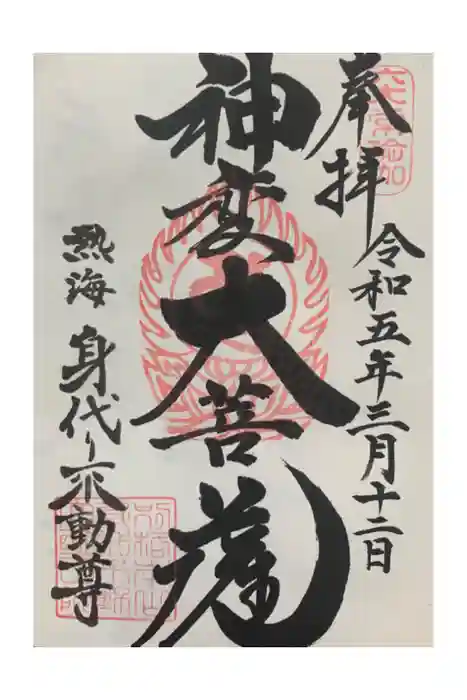 奉拝
令和五年三月十二日
神変大菩薩
熱海
身代り不動尊